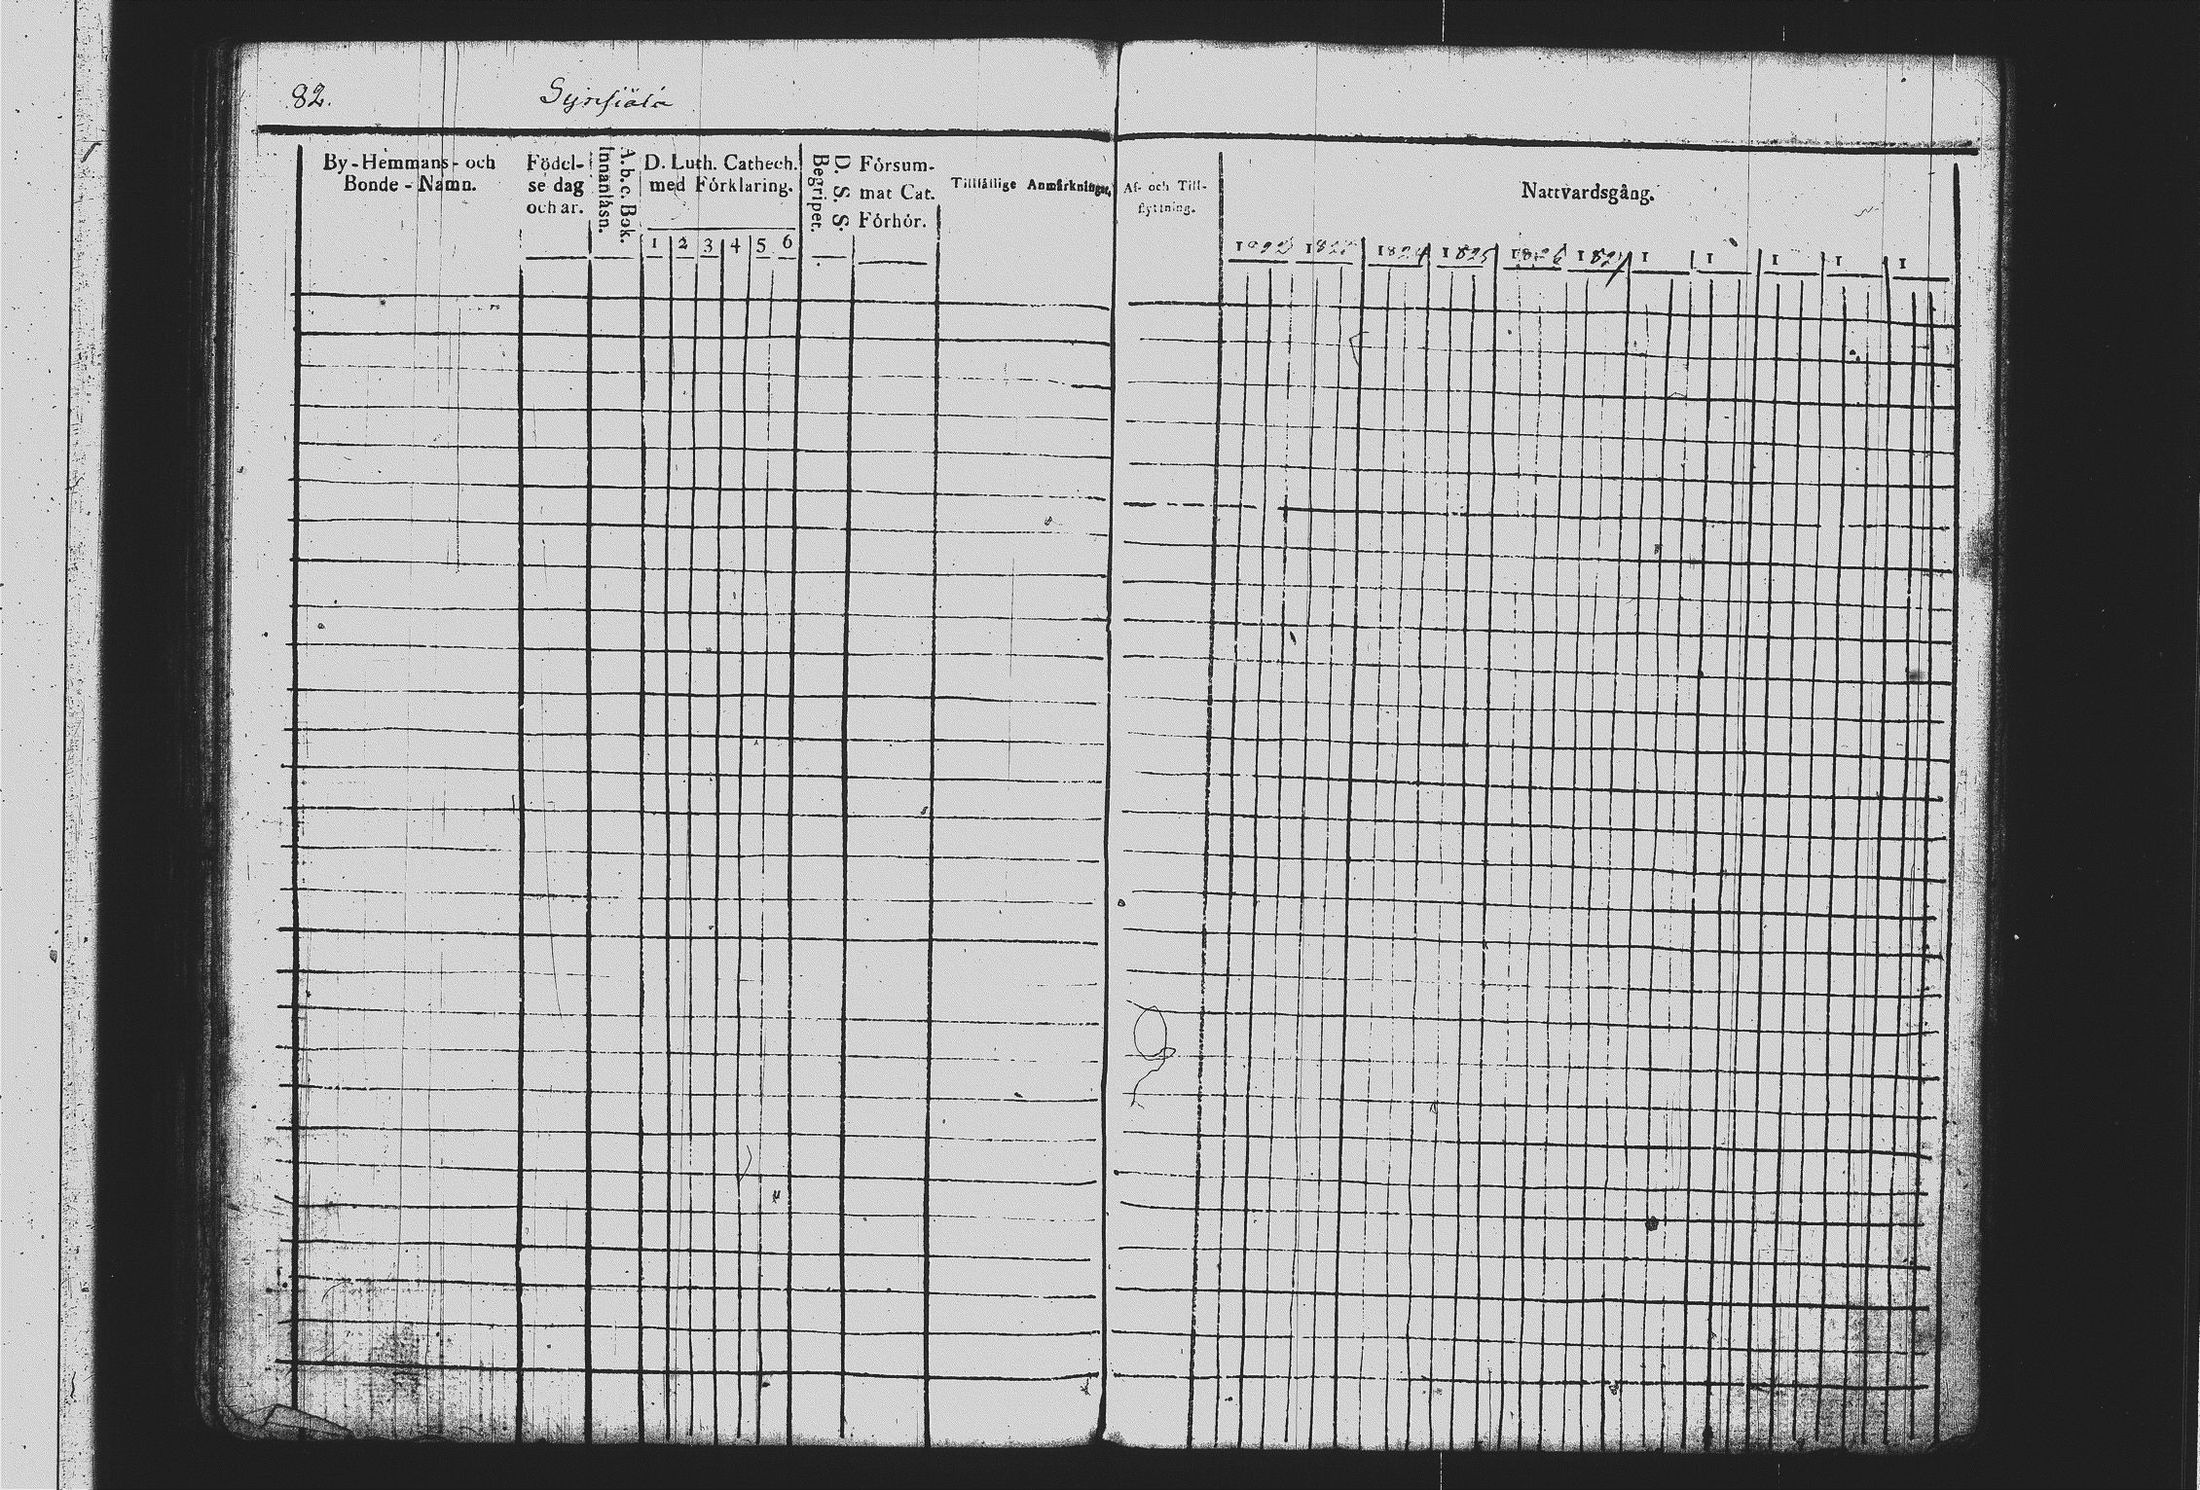 82.
Synsiälä
By-Hemmans- och
Bonde-Namn.
Födel-
se dag
och år.
A. b. c. Bok.
Innanläsn.
D. Luth. Cathech.
med Förklaring.
1 2 3 4 5 6
D. S. S.
Begripet.
Försum-
mat Cat.
Förhör.
Tillfällige Anmärkningar.
Af- och Till-
flyttning.
Nattvardsgång.
1822 1823 1824 1825 1826 1827 1 1 1 1 1